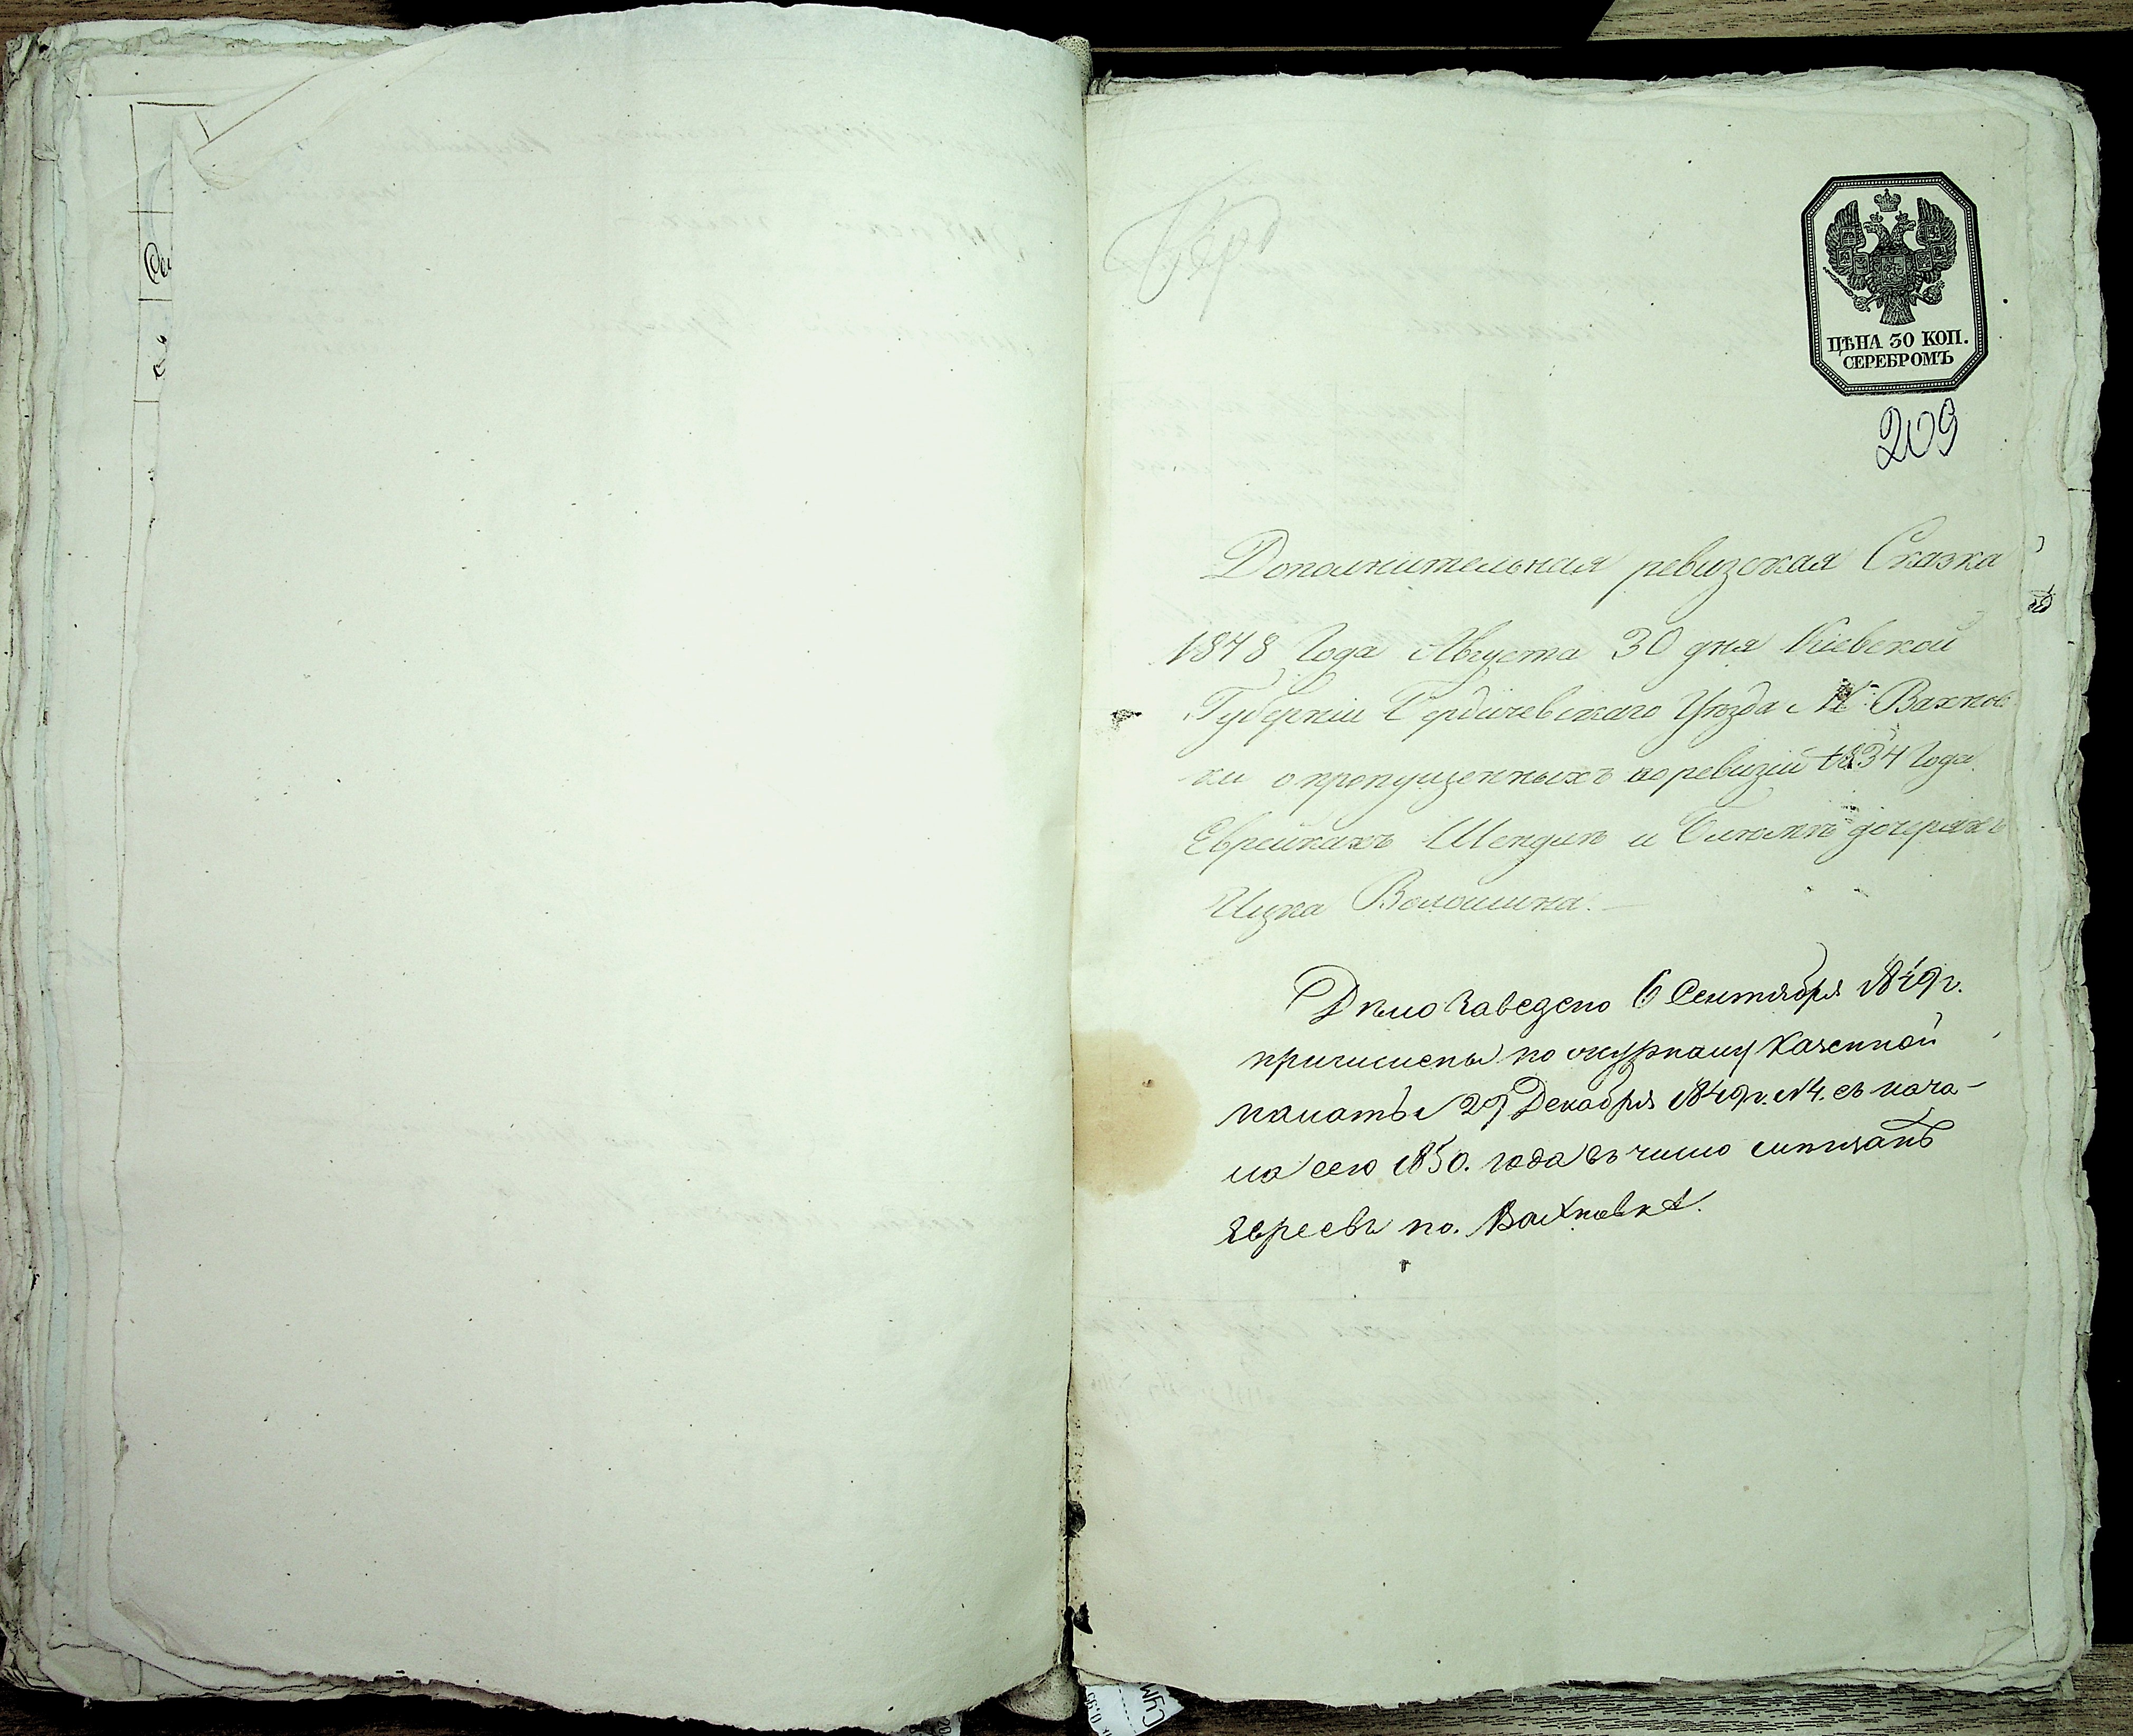 Бер
ЦѢНА 30 КОП.
СЕРЕБРОМЪ
209
Дополнительная ревизская Сказка
1848 Года Августа 30 дня Кіевской
Губерніи Бердичевскаго Уѣзда М. Вахнов
ки о пропущенныхъ по ревизіи 1834 Года
Еврейкахъ Шендлѣ и Блюмѣ дочеряхъ
Ицка Волошина. —
Дѣло заведено 6 Сентября 1849 г.
причислены по журналу Казенной
палаты 29 Декабря 1849 г. N 4. съ нача-
ла сего 1850. года въ число мѣщанъ
евреевъ по. Вахновкѣ.